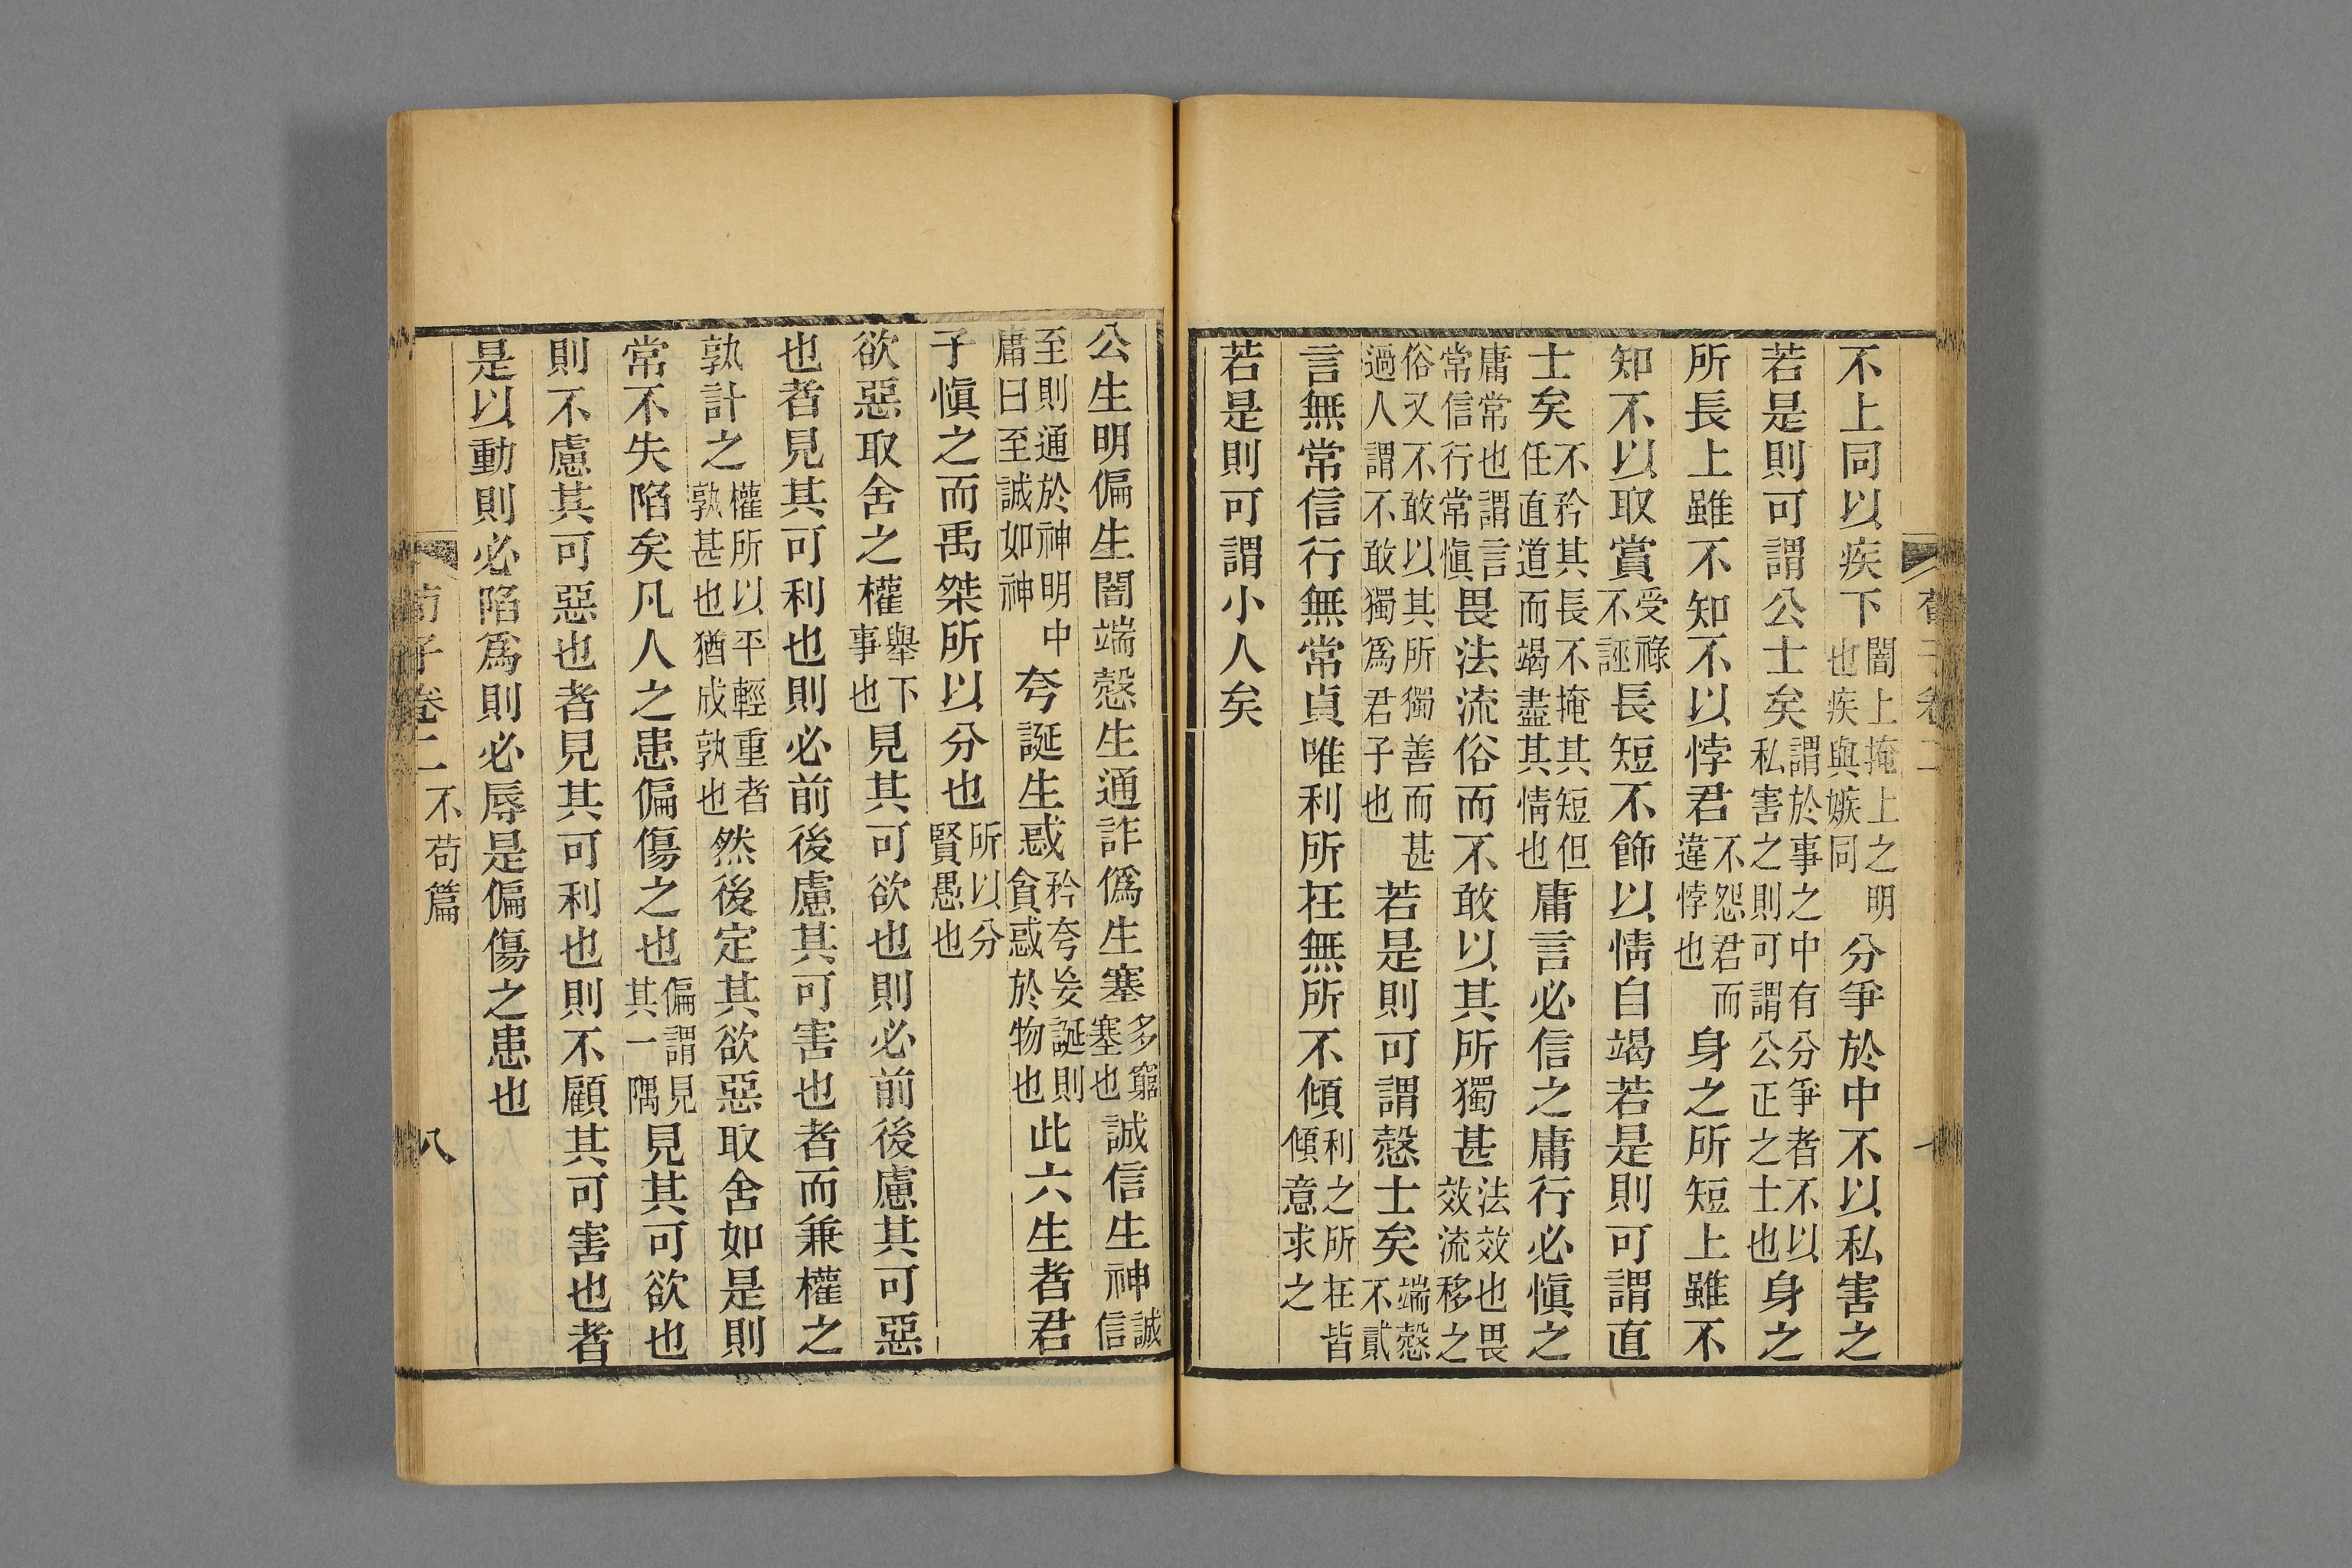 荀子卷二
不上同以疾下闇上掩上之明也疾與嫉同分爭於中不以私害之
若是則可謂公士矣謂於事之中有分爭者不以私害之則可謂公正之士也身之
所長上雖不知不以悖君不怨君而違悖也身之所短上雖不
知不以取賞受祿不誣長短不飾以情自竭若是則可謂直
士矣不矜其長不掩其短但任直道而竭盡其情也庸言必信之庸行必愼之
庸常也謂言常信行常愼畏法流俗而不敢以其所獨甚法效也畏效流移之
俗又不敢以其所獨善而甚過人謂不敢獨爲君子也若是則可謂愨士矣端愨不貳
言無常信行無常貞唯利所在無所不傾利之所在皆傾意求之
若是則可謂小人矣
公生明偏生闇端愨生通詐僞生塞多窮塞也誠信生神誠信
至則通於神明中庸曰至誠如神夸誕生惑矜夸妄誕則貪惑於物也此六生者君
子愼之而禹桀所以分也所以分賢愚也
欲惡取舍之權舉下事也見其可欲也則必前後慮其可惡
也者見其可利也則必前後慮其可害也者而兼權之
孰計之權所以平輕重者孰甚也猶成孰也然後定其欲惡取舍如是則
常不失陷矣凡人之患偏傷之也偏謂見其一隅見其可欲也
則不慮其可惡也者見其可利也則不顧其可害也者
是以動則必陷爲則必辱是偏傷之患也
荀子卷二不苟篇 八